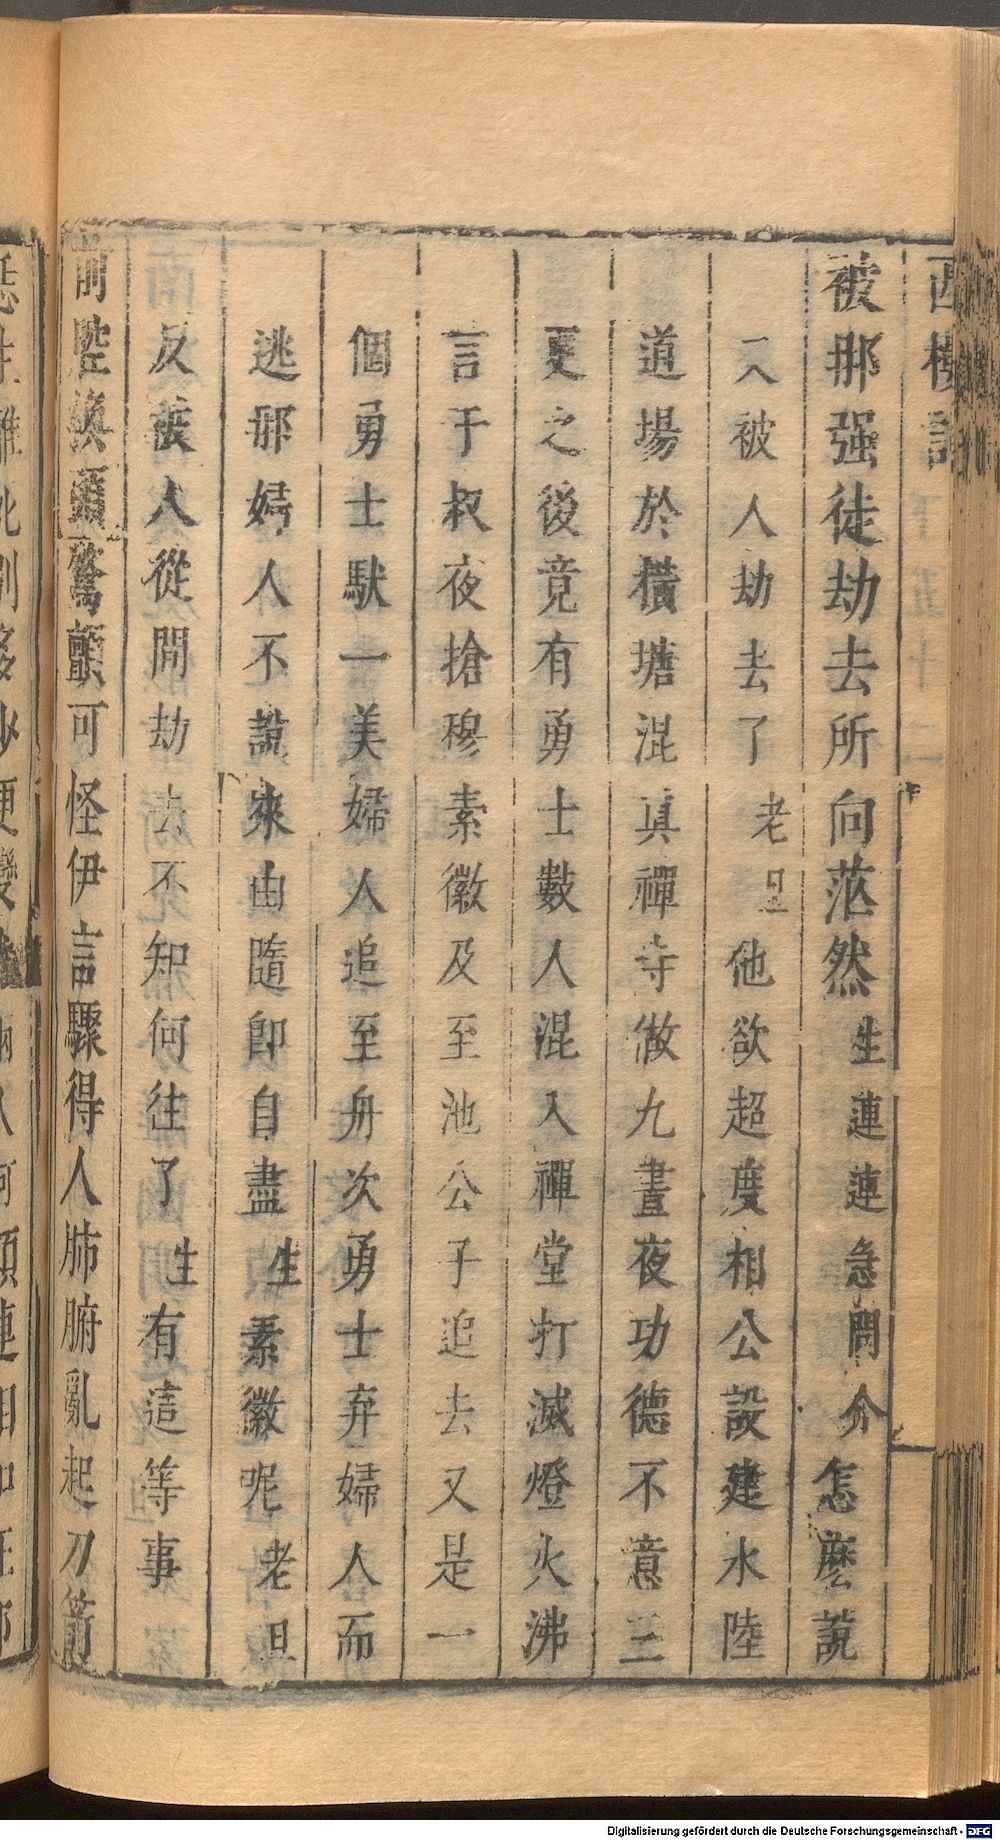 西樓記
被那强徒劫去所向茫然生連連急問介怎麼說
又被人劫去了老旦他欲超度相公設建水陸
道場於橫塘混眞禪寺做九晝夜功德不意三
更之後竟有勇士數人混入禪堂打滅燈火沸
言于叔夜搶穆素徽及至池公子追去又是一
個勇士馱一美婦人追至舟次勇士弃婦人而
逃那婦人不說來由隨卽自盡生素徽呢老旦
反被人從間劫去不知何往了生有這等事
前腔換頭驚顫可怪伊言驟得人肺腑亂起刀箭
Digitalisierung gefördert durch die Deutsche Forschungsgemeinschaft - DFG